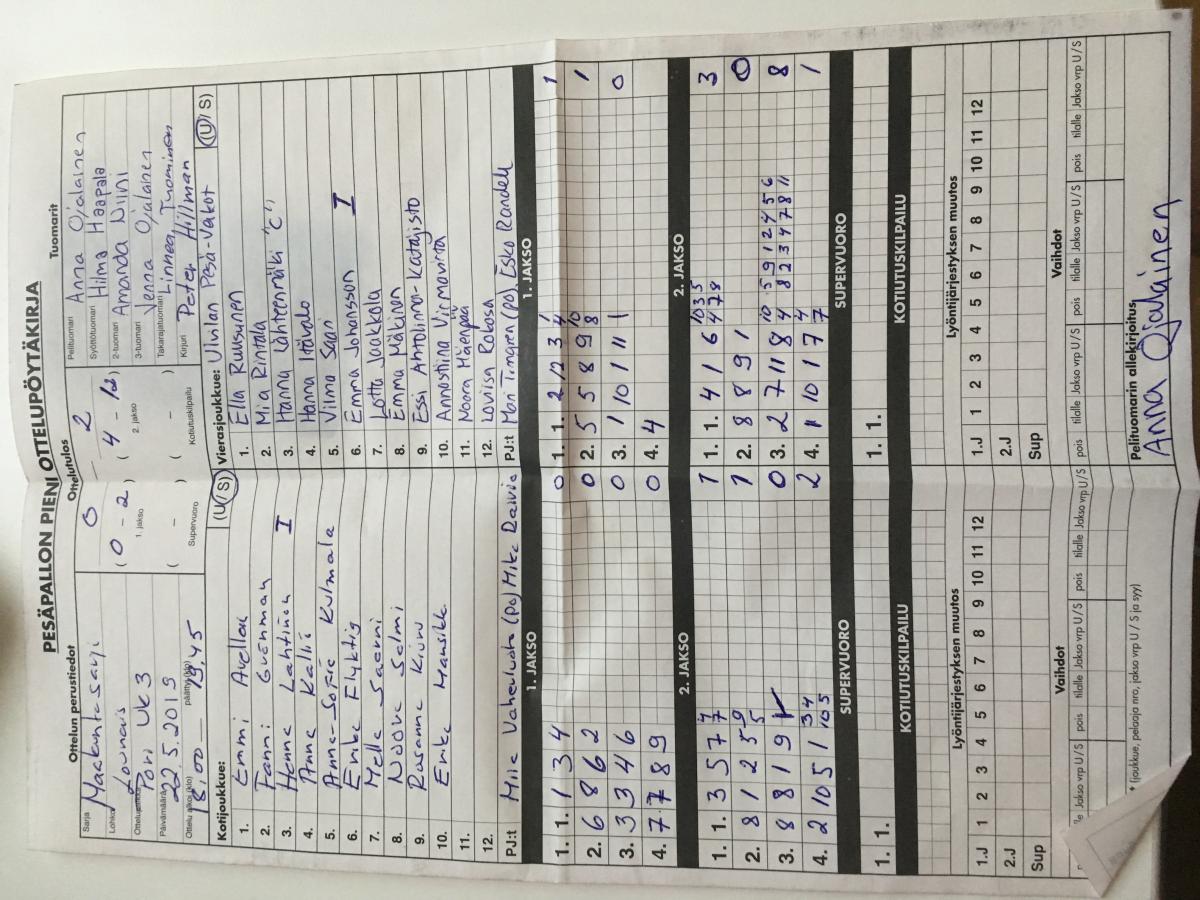 PESÄPALLON PIENI OTTELUPÖYTÄKIRJA
Ottelun perustiedot
Sarja Maakuntasarja
Lohko Lounais
Ottelupaikka Pori Uk 3
Päivämäärä 22.5.2019
Ottelu alkoi (klo) 18.00 päättyi (klo) 19.45
Ottelutulos
0 - 2
( 0 - 2 ) ( 4 - 12 )
1. jakso 2. jakso
( - ) ( - )
Supervuoro Kotiutuskilpailu
Tuomarit
Pelituomari Anna Ojalainen
Syöttötuomari Hilma Haapala
2-tuomari Amanda Niini
3-tuomari Jenna Ojalainen
Takarajatuomari Linnea Tuominen
Kirjuri Peter Hillman
Kotijoukkue: (U / S)
1. Emmi Avellan
2. Fanni Grönman
3. Henna Lahtinen I
4. Anna Kalli
5. Anna-Sofia Kulmala
6. Erika Flyktig
7. Mella Saarni
8. Noora Salmi
9. Rosanna Kiuru
10. Erika Mansikk
11.
12.
PJ:t Miia Vaheluoto (pj) Mika Daivio
Vierasjoukkue: Ulvilan Pesä-Veikot (U / S)
1. Ella Ruusunen
2. Mia Rintala
3. Hanna Lähteenmäki "C"
4. Hanna Itävalo
5. Vilma Saari
6. Emma Johansson I
7. Lotta Jaakkola
8. Emma Mäkinen
9. Essi Antolinna-Katajisto
10. Annastiina Virmavirta
11. Noora Mäenpää
12. Loviisa Rokosa
PJ:t Mari Tingren (pj), Esko Randell
1. JAKSO 1. JAKSO
1. 1. 1 3 4 0
2. 6 8 6 2 0
3. 3 3 4 6 0
4. 7 7 8 9 0
1. 1. 2 12 3 4 1 1
2. 5 5 8 9 8 10 1
3. 1 10 11 1 0
4. 4
2. JAKSO 2. JAKSO
1. 1. 3 5 7 7 7 1
2. 8 1 2 5 5 9 1
3. 8 8 1 9 1 0
4. 2 10 5 1 3 4 10 5 2
1. 1. 4 1 6 4 7 8 10 3 5 3
2. 8 8 9 1 0
3. 2 7 11 8 4 8 2 3 4 7 8 11 10 5 9 1 2 4 5 6 8
4. 1 10 1 7 7 4 1
SUPERVUORO SUPERVUORO
1. 1.
1. 1.
KOTIUTUSKILPAILU KOTIUTUSKILPAILU
Lyöntijärjestyksen muutos
1.J 1 2 3 4 5 6 7 8 9 10 11 12
2.J
Sup
Lyöntijärjestyksen muutos
1.J 1 2 3 4 5 6 7 8 9 10 11 12
2.J
Sup
Vaihdot
Jakso vrp U / S pois tilalle Jakso vrp U / S pois tilalle Jakso vrp U / S
Vaihdot
pois tilalle Jakso vrp U / S pois tilalle Jakso vrp U / S pois tilalle Jakso vrp U / S
* (joukkue, pelaaja nro, jakso vrp U / S ja syy)
Pelituomarin allekirjoitus
Anna Ojalainen